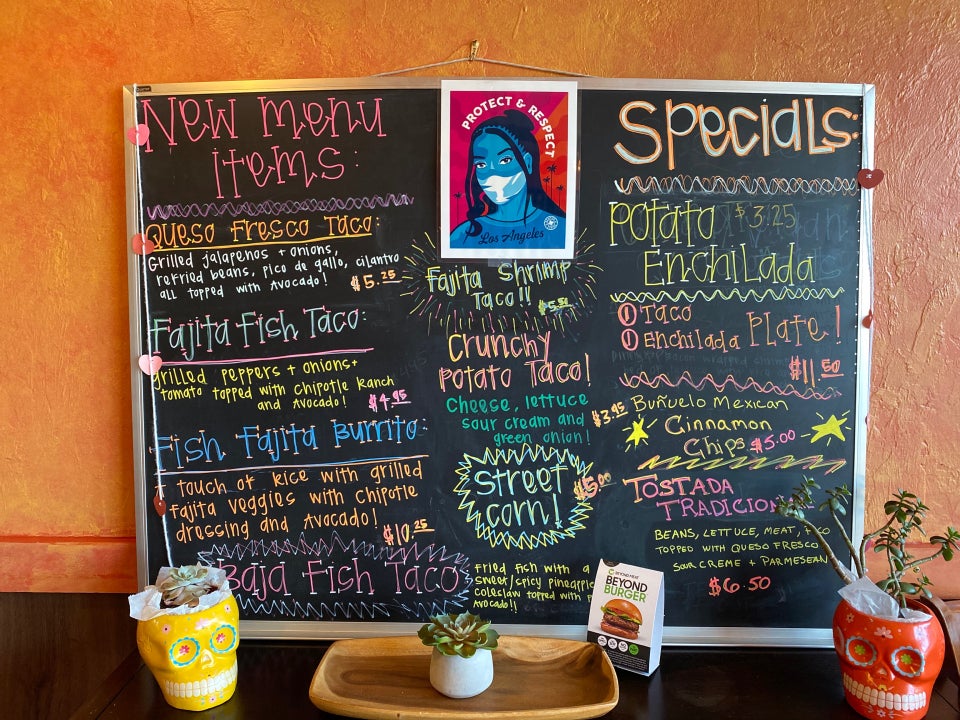 New Menu
Items:
Queso Fresco Taco:
Grilled jalapenos + onions,
refried beans, pico de gallo, cilantro
all topped with Avocado!
$5.25
Fajita Fish Taco:
Grilled peppers + onions+
tomato topped with chipotle ranch
and Avocado!
$4.95
Fish Fajita Burrito:
touch of rice with grilled
fajita veggies with chipotle
dressing and Avocado!
$10.25
Baja Fish Taco
PROTECT & RESPECT
Los Angeles
Fajita Shrimp
Taco!!
Crunchy
Potato Taco!
Cheese, lettuce
sour cream and
green onion!
$3.95
Street
corn!
$5.00
Fried fish with a
sweet/spicy pineapple
coleslaw topped with
Avocado!!
BEYOND MEAT
BEYOND
BURGER
Specials:
Potato $3.25
Enchilada
1 Taco
1 Enchilada Plate!
$11.50
Buñuelo Mexican
Cinnamon
Chips $5.00
TOSTADA
BEANS, LETTUCE, MEAT,
TOPPED WITH QUESO FRESCO
SOUR CREME + PARMESEAN
$6.50